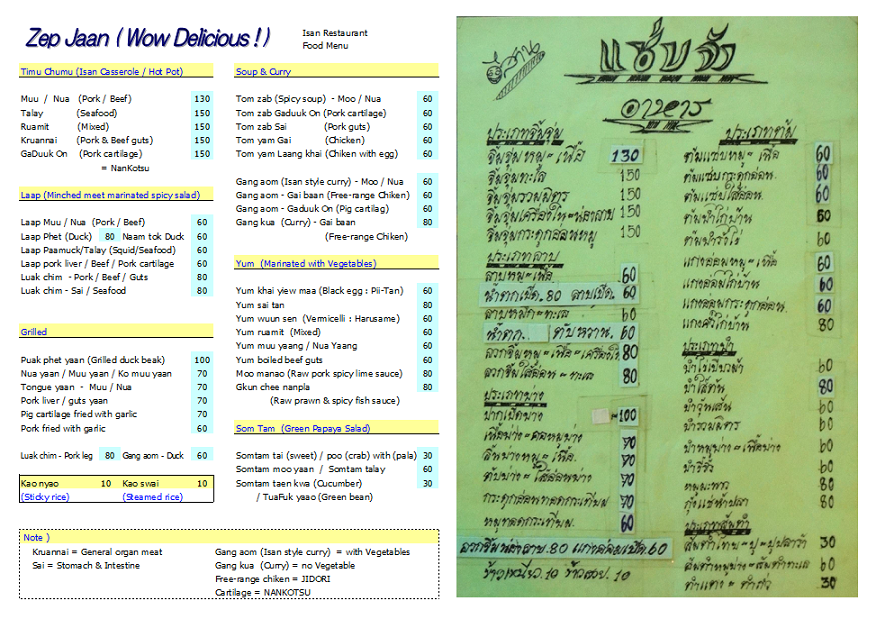 Zep Jaan ( Wow Delicious ! )
Isan Restaurant
Food Menu
Timu Chumu (Isan Casserole / Hot Pot)
Muu / Nua (Pork / Beef) 130
Talay (Seafood) 150
Ruamit (Mixed) 150
Kruannai (Pork & Beef guts) 150
GaDuuk On (Pork cartilage) 150
= NanKotsu
Laap (Minched meet marinated spicy salad)
Laap Muu / Nua (Pork / Beef) 60
Laap Phet (Duck) 80 Naam tok Duck 60
Laap Paamuck/Talay (Squid/Seafood) 60
Laap pork liver / Beef / Pork cartilage 60
Luak chim - Pork / Beef / Guts 80
Luak chim - Sai / Seafood 80
Grilled
Puak phet yaan (Grilled duck beak) 100
Nua yaan / Muu yaan / Ko muu yaan 70
Tongue yaan - Muu / Nua 70
Pork liver / guts yaan 70
Pig cartilage fried with garlic 70
Pork fried with garlic 60
Luak chim - Pork leg 80 Gang aom - Duck 60
Kao nyao 10 Kao swai 10
(Sticky rice) (Steamed rice)
Soup & Curry
Tom zab (Spicy soup) - Moo / Nua 60
Tom zab Gaduuk On (Pork cartilage) 60
Tom zab Sai (Pork guts) 60
Tom yam Gai (Chicken) 60
Tom yam Laang khai (Chiken with egg) 60
Gang aom (Isan style curry) - Moo / Nua 60
Gang aom - Gai baan (Free-range Chiken) 60
Gang aom - Gaduuk On (Pig cartilag) 60
Gang kua (Curry) - Gai baan 80
(Free-range Chiken)
Yum (Marinated with Vegetables)
Yum khai yiew maa (Black egg : Pii-Tan) 60
Yum sai tan 80
Yum wuun sen (Vermicelli : Harusame) 60
Yum ruamit (Mixed) 60
Yum muu yaang / Nua Yaang 60
Yum boiled beef guts 60
Moo manao (Raw pork spicy lime sauce) 80
Gkun chee nanpla 80
(Raw prawn & spicy fish sauce)
Som Tam (Green Papaya Salad)
Somtam tai (sweet) / poo (crab) with (pala) 30
Somtam moo yaan / Somtam talay 60
Somtam taen kwa (Cucumber) 30
/ TuaFuk yaao (Green bean)
Note )
Kruannai = General organ meat
Sai = Stomach & Intestine
Gang aom (Isan style curry) = with Vegetables
Gang kua (Curry) = no Vegetable
Free-range chiken = JIDORI
Cartilage = NANKOTSU
อีสาน
แซ่บจัง
อาหาร
ประเภทจิ้มจุ่ม
จิ้มจุ่มหมู = เนื้อ 130
จิ้มจุ่มทะเล 150
จิ้มจุ่มรวมมิตร 150
150
จิ้มจุ่มกระดูกอ่อนหมู 150
ประเภทลาบ
ลาบหมู = เนื้อ 60
น้ำตกเป็ด. 80 ลาบเป็ด. 60
ลาบหมึก = ทะเล 60
น้ำตก. ตับหวาน. 60
ลวกจิ้มหมู = เนื้อ = เครื่องใน 80
ลวกจิ้มไส้อ่อน = ทะเล 80
ประเภทย่าง
ปากเป็ดย่าง = 100
เนื้อย่าง = คอหมูย่าง 70
ลิ้นย่างหมู = เนื้อ. 70
ตับย่าง = ไส้อ่อนย่าง 70
กระดูกอ่อนทอดกระเทียม 70
หมูทอดกระเทียม. 60
80 แกงอ่อมเป็ด. 60
ข้าวเหนียว. 10 ข้าวสวย. 10
ประเภทต้ม
ต้มแซ่บหมู = เนื้อ 60
ต้มแซ่บกระดูกอ่อน. 60
ต้มแซ่บไส้อ่อน. 60
ต้มยำไก่บ้าน 60
60
แกงอ่อมหมู = เนื้อ 60
แกงอ่อมไก่บ้าน 60
แกงอ่อมกระดูกอ่อน. 60
แกงคั่วไก่บ้าน 80
ประเภทยำ
ยำไข่เยี่ยวม้า 60
ยำไส้ตัน 80
ยำวุ้นเส้น 60
ยำรวมมิตร 60
ยำหมูย่าง = เนื้อย่าง 60
60
หมูมะนาว 80
กุ้งแช่น้ำปลา 80
ประเภทส้มตำ
ส้มตำไทย = ปู = ปูปลาร้า 30
ส้มตำหมูย่าง = ส้มตำทะเล 60
ตำแตง = ตำถั่ว 30